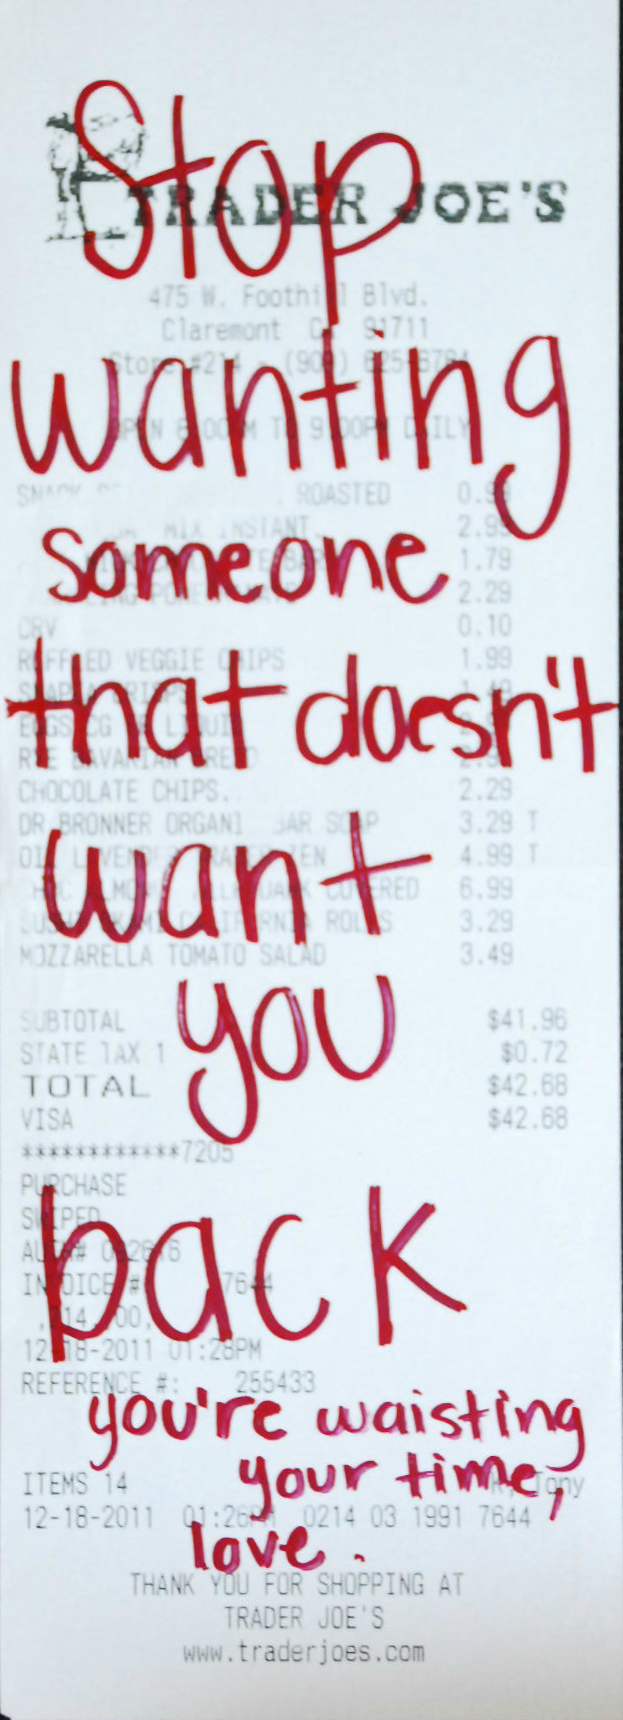 Stop
TRADER JOE'S
475 W. Foothill Blvd.
Claremont CA 91711
Store #214 - (909) 625-8784
wanting
OPEN 8:00AM TO 9:00PM DAILY
ROASTED 0.99
someone
MIX INSTANT 2.99
1.79
2.29
CRV 0.10
RUFFLED VEGGIE CHIPS 1.99
that doesn't
SNAPEA CRISPS 1.49
EGGS
RYE BAVARIAN BREAD
CHOCOLATE CHIPS. 2.29
DR BRONNER ORGANI BAR SOAP 3.29 T
want
OIL LAVENDER 4.99 T
COVERED 6.99
SUSHI OKAMI CALIFORNIA ROLLS 3.29
MOZZARELLA TOMATO SALAD 3.49
you
SUBTOTAL $41.96
STATE TAX 1 $0.72
TOTAL $42.68
VISA $42.68
************7205
PURCHASE
SWIPED
back
AUTH#
INVOICE #: 7644
12-18-2011 01:28PM
REFERENCE #: 255433
you're waisting
your time,
ITEMS 14 Tony
12-18-2011 01:26PM 0214 03 1991 7644
love.
THANK YOU FOR SHOPPING AT
TRADER JOE'S
www.traderjoes.com